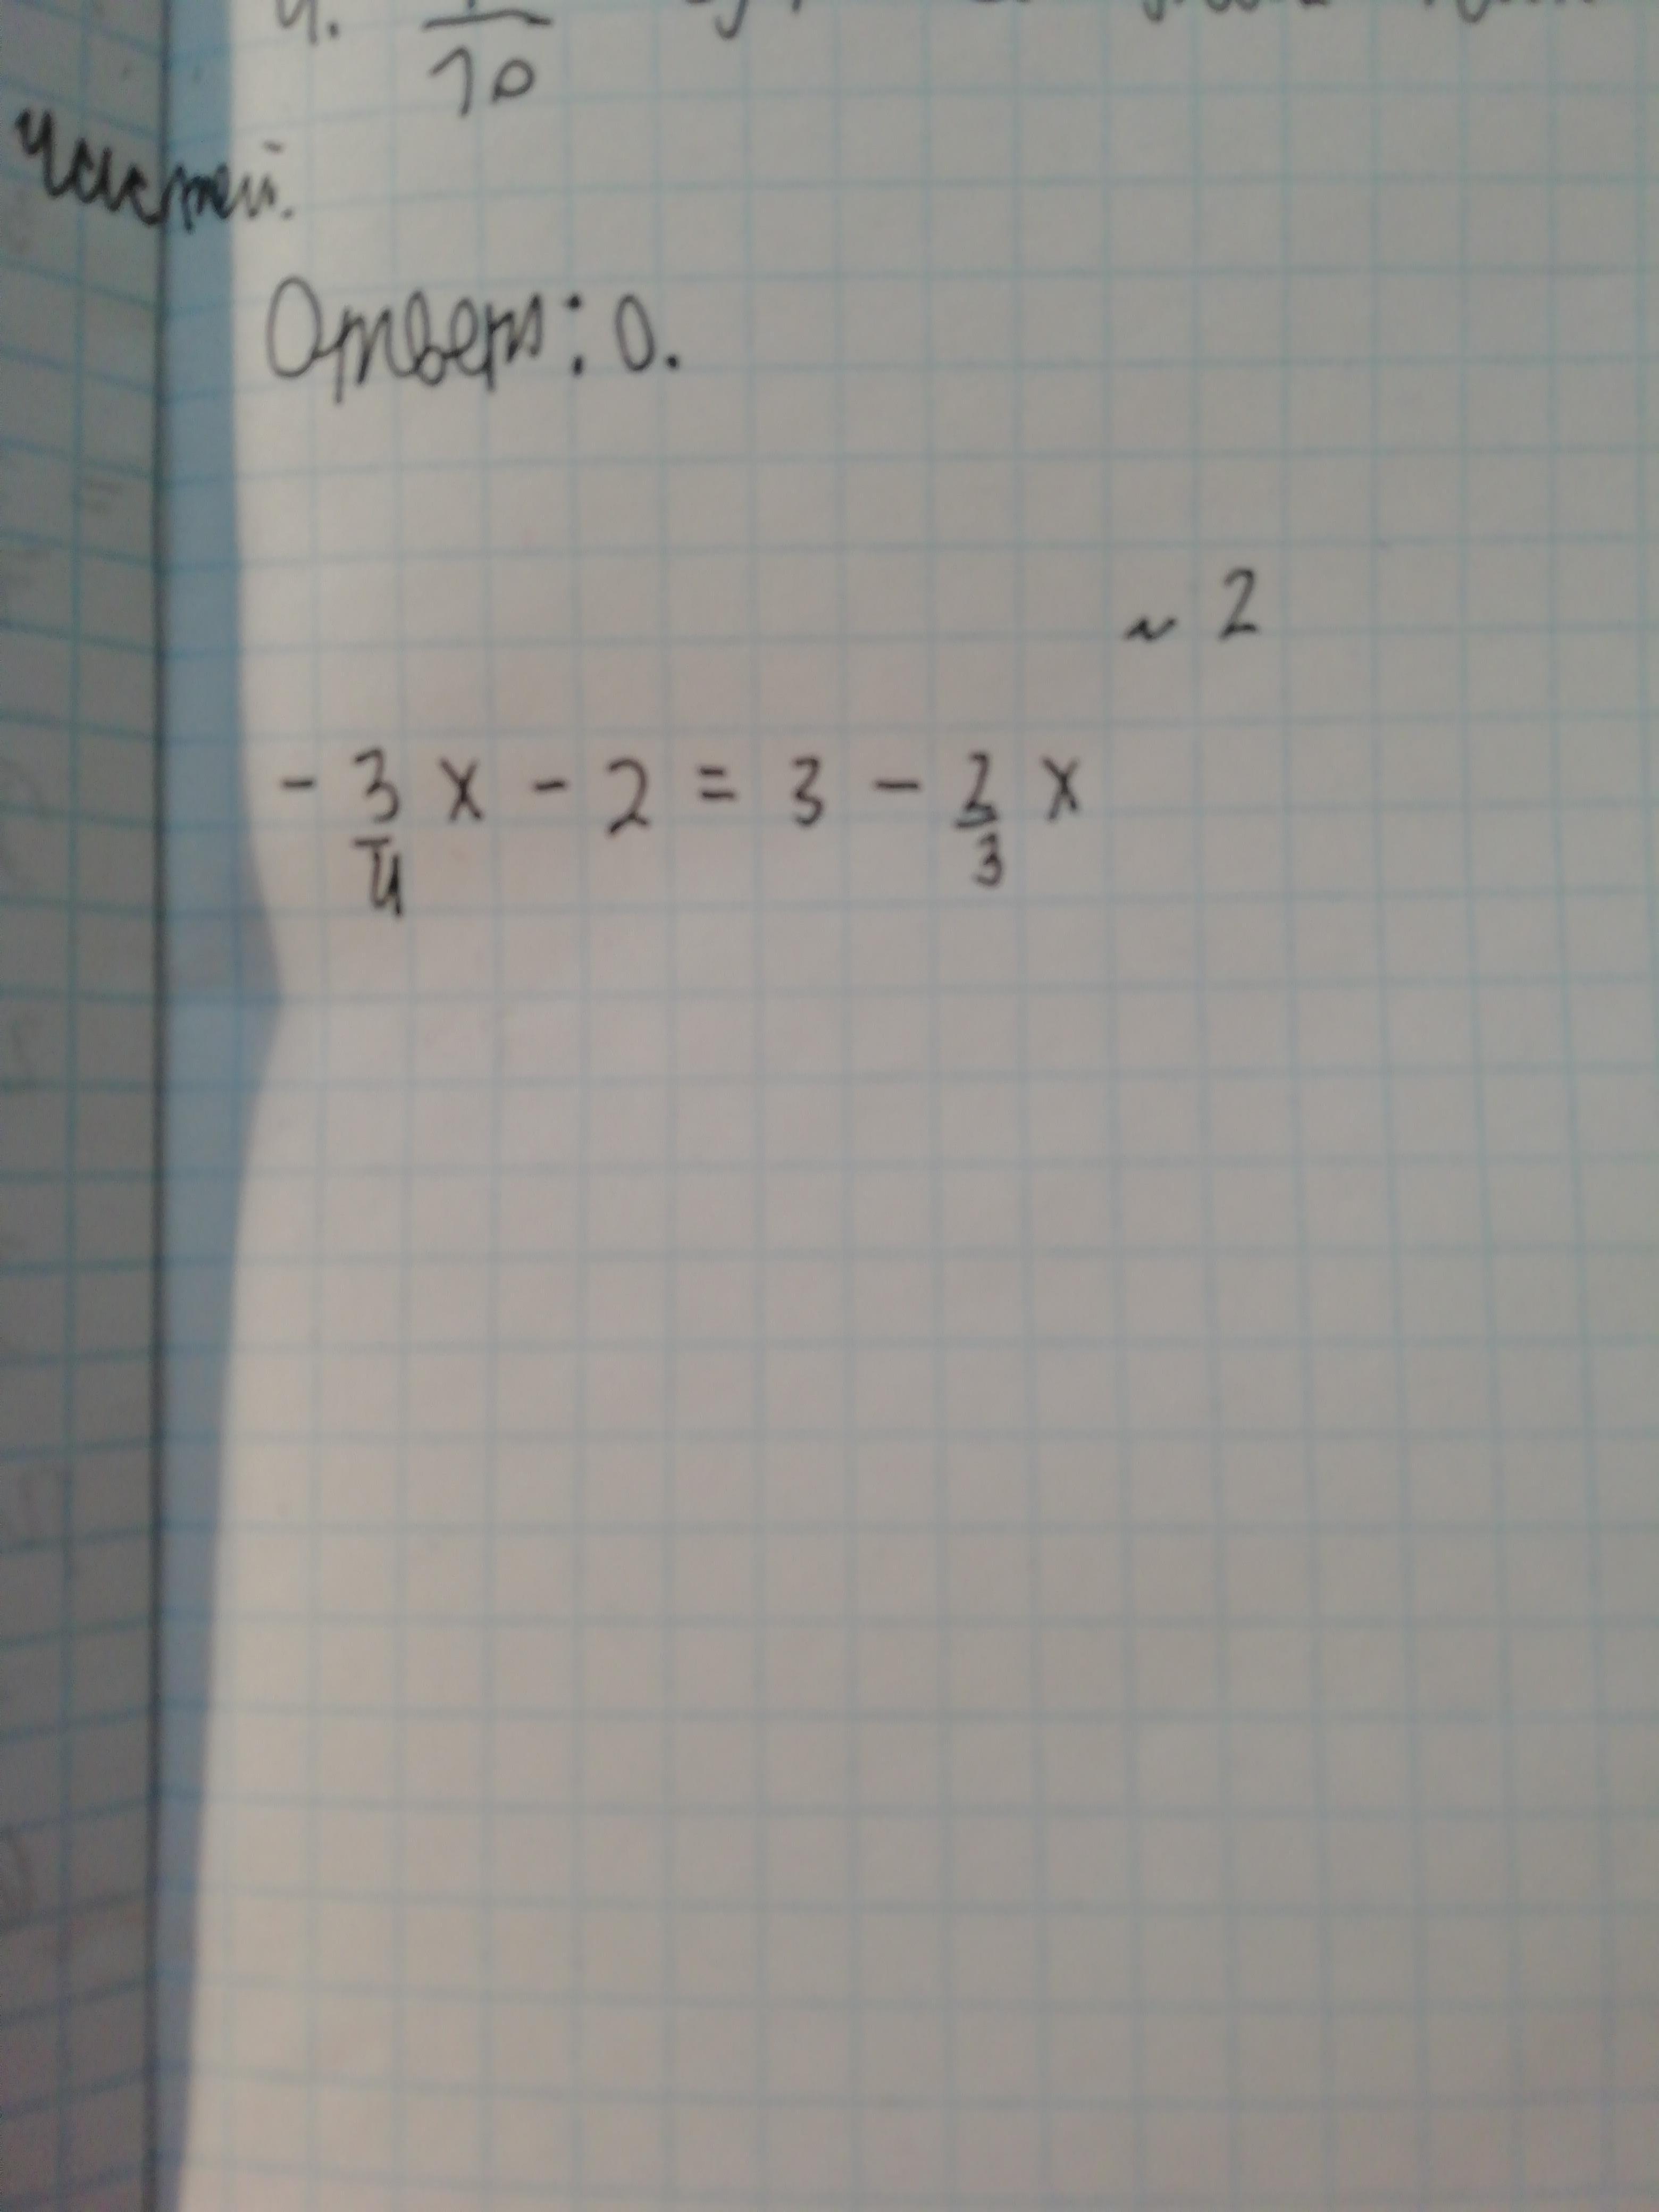 10
частей.
Ответ: 0.
~ 2
- 3/4 x - 2 = 3 - 2/3 x